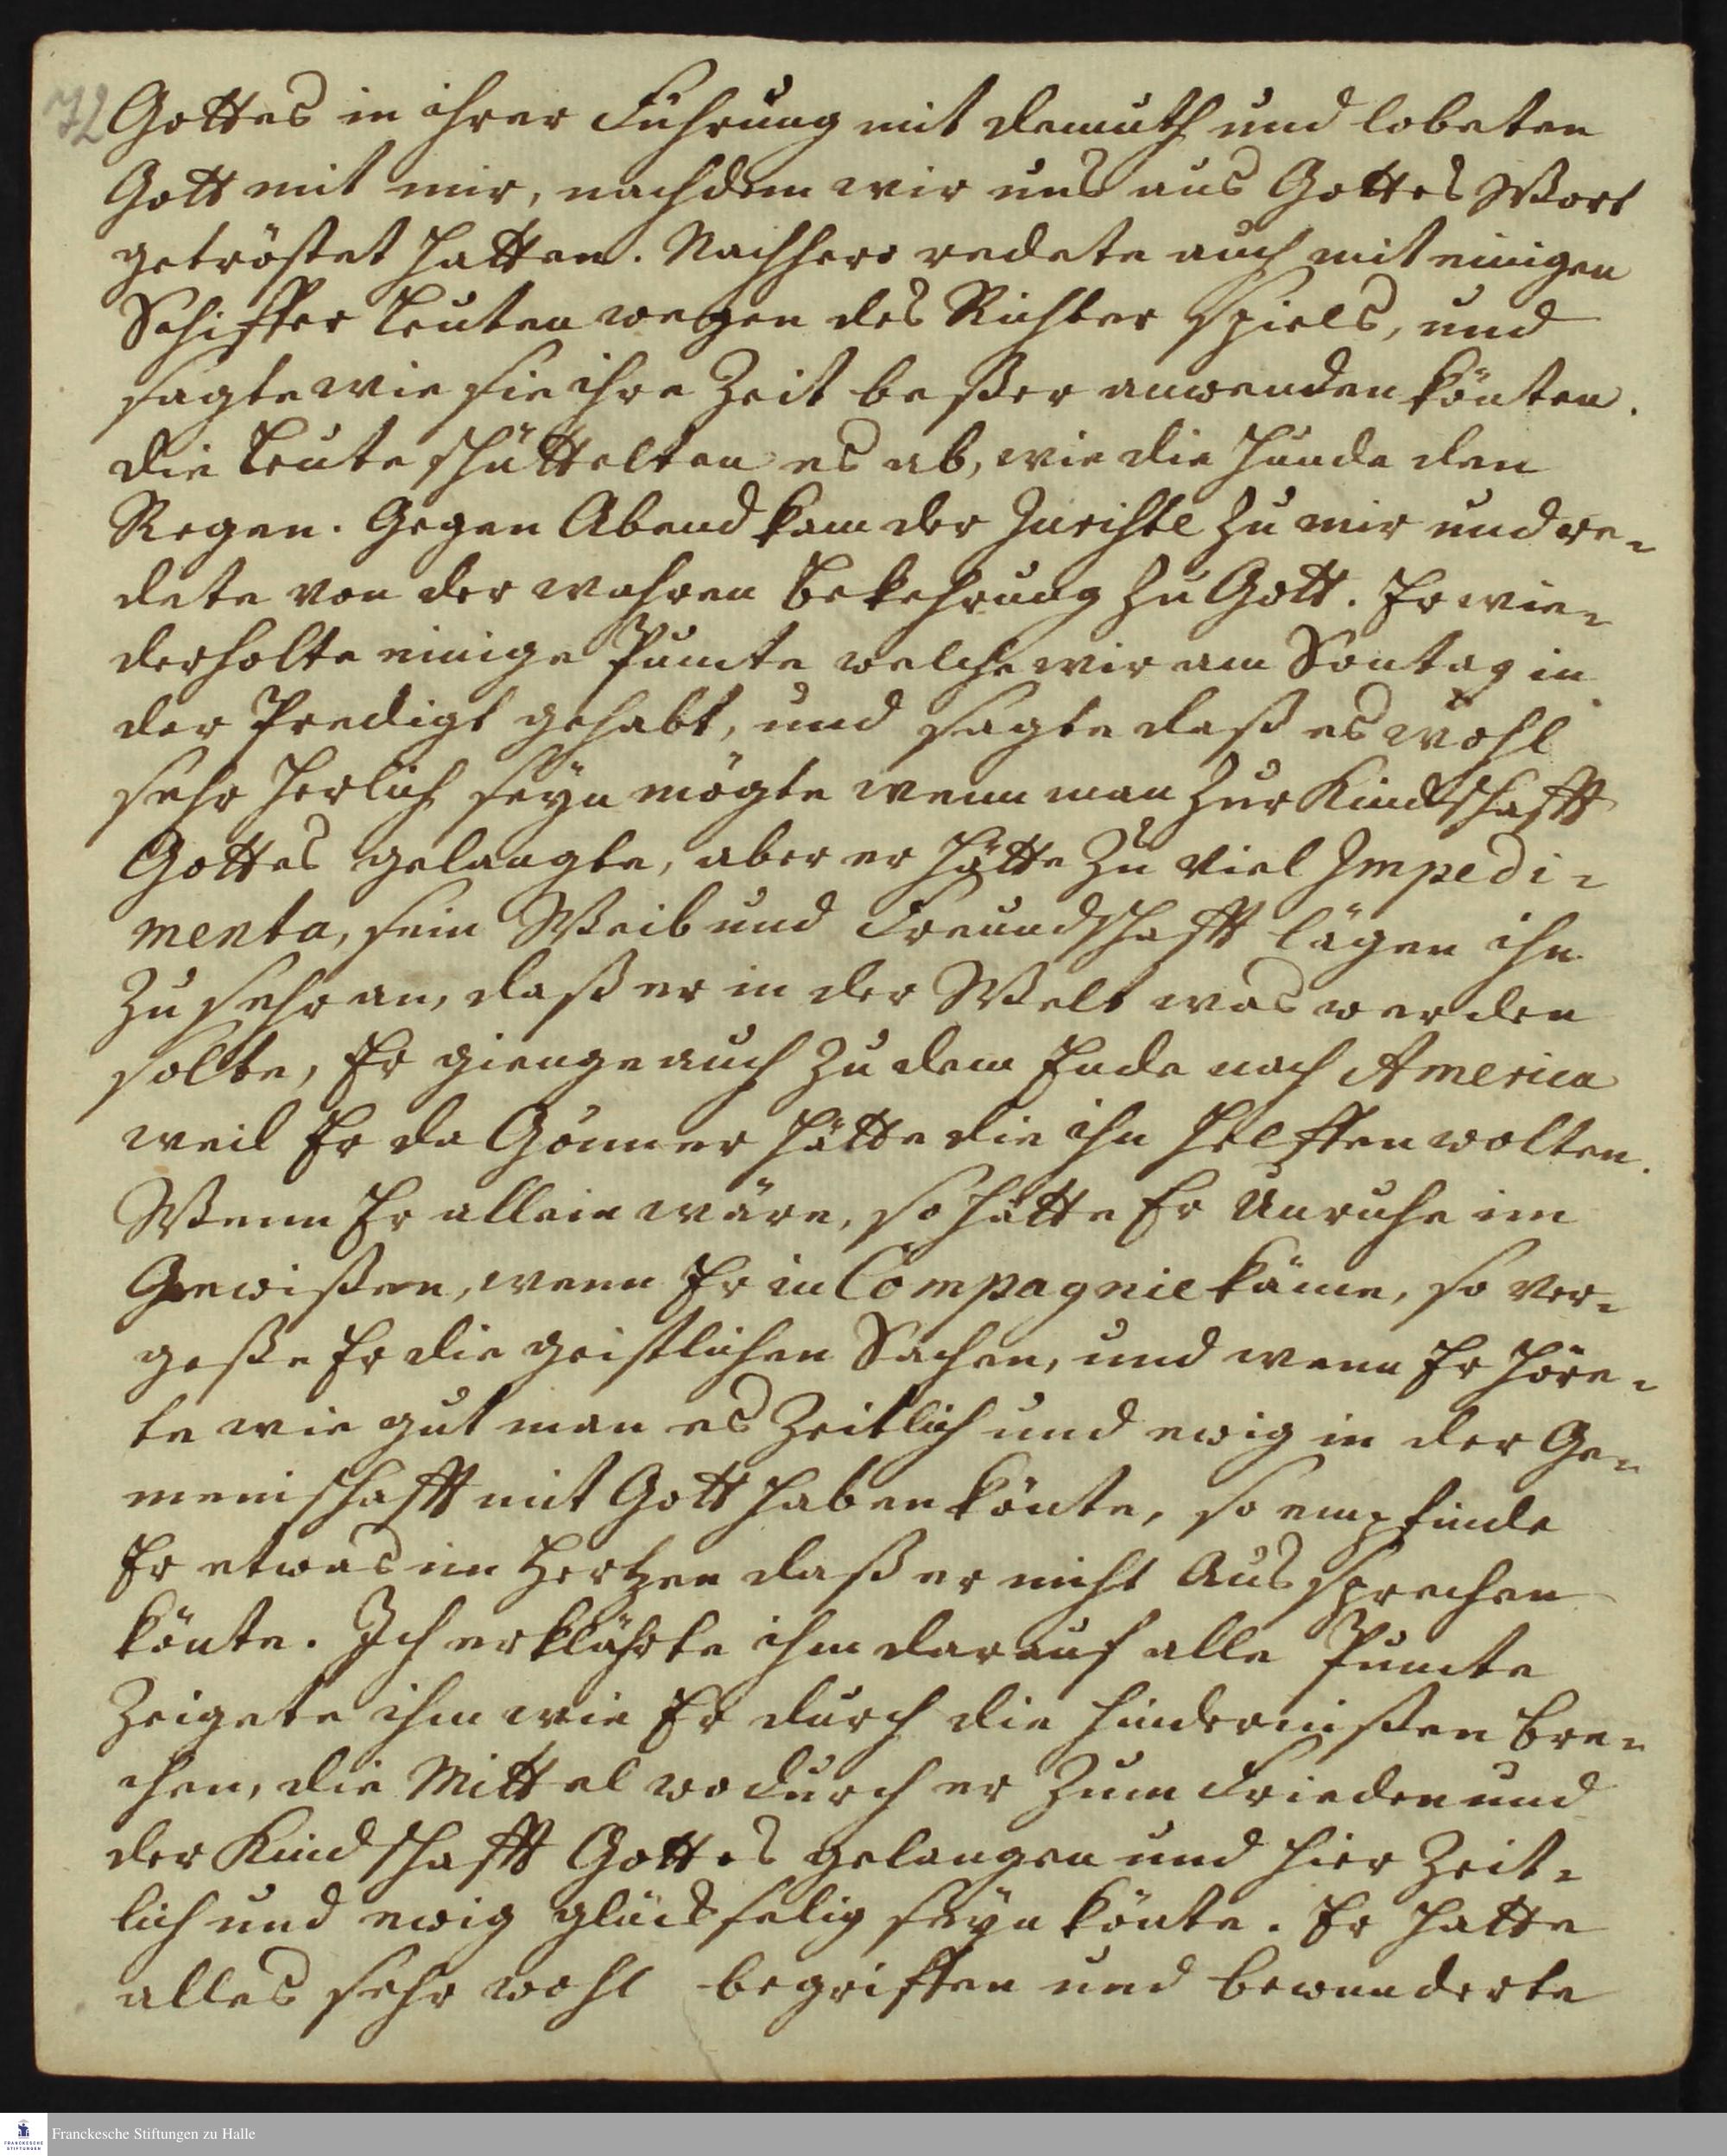 72 Gottes in ihrer Führung mit demuth und lobeten
Gott mit mir, nachdem wir uns aus Gottes Wort
getröstet hatten. Nachhero redete auch mit einigen
Schiffer Leuten wegen des Richter Spiels, und
sagte wie sie ihre Zeit beßer anwenden könten.
die Leute schüttelten es ab, wie die Hunde den
Regen. Gegen Abend kam der Juriste zu mir und re-
dete von der wahren Bekehrung zu Gott. Er wie-
derholte einige Puncte welche wir am Sontag in
der Predigt gehabt, und sagte daß es wohl
sehr herlich seyn mögte wenn man zur Kindschafft
Gottes gelangte, aber er hätte zu viel Impedi-
menta, sein Weib und Freundschafft lägen ihn
zu sehr an, daß er in der Welt was werden
solte, Er gienge auch zu dem Ende nach America
weil Er da Gönner hätte die ihn helffen wolten.
Wenn Er allein wäre, so hätte Er Unruhe im
Gewißen, wenn Er in Compagnie käme, so ver-
geße Er die geistlichen Sachen, und wenn Er höre-
te wie gut man es Zeitlich und ewig in der Ge-
meinschafft mit Gott haben könte, so empfinde
Er etwas im Hertzen daß er nicht Aussprechen
könte. Ich erklährte ihm darauf alle Puncte
Zeigete ihm wie Er durch die Hindernißen bre-
chen, die Mittel wodurch er zum Frieden und
der Kindschafft Gottes gelangen und hier Zeit-
lich und ewig glückselig seyn könte. Er hatte
alles sehr wohl begriffen und bewunderte
Franckesche Stiftungen zu Halle